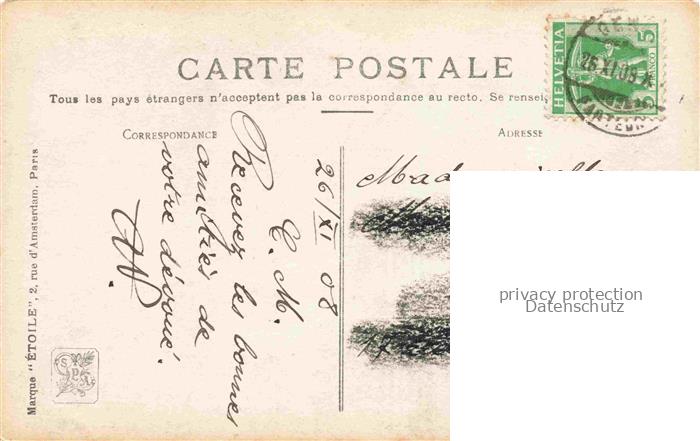 CARTE POSTALE
Tous les pays étrangers n'acceptent pas la correspondance au recto. Se rensei
CORRESPONDANCE
ADRESSE
HELVETIA
5
FRANCO
26.XI.08
26/XI 08
C. M.
Recevez les bonnes
amitiés de
votre dévoué.
Mad
privacy protection
Datenschutz
Marque "ÉTOILE", 2, rue d'Amsterdam, Paris